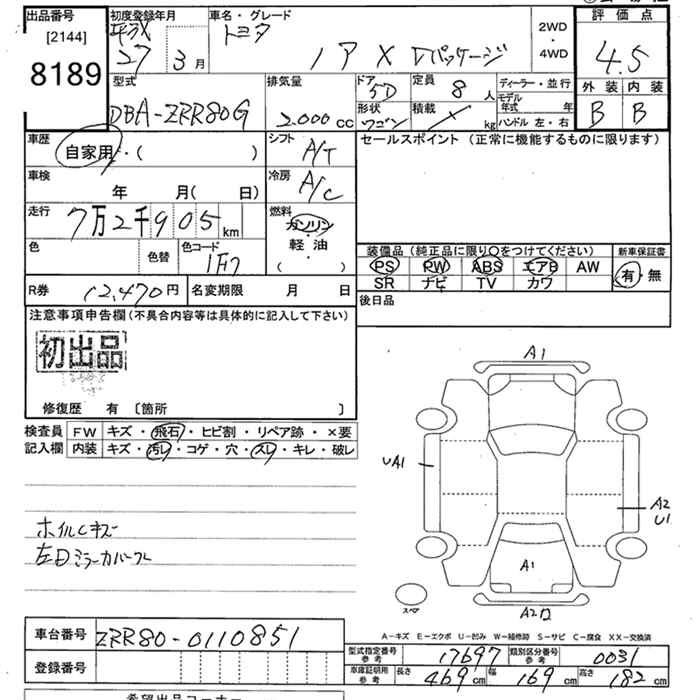 出品番号 初度登録年月 車名・グレード 評価点
[2144] 平成 トヨタ 2WD
8189 27 3月 ノア X Vパッケージ ・ 4WD 4.5
型式 排気量 ドア 5D 定員 8人 ディーラー・並行 外装 内装
DBA-ZRR80G 2.000cc 形状 ワゴン 積載 kg モデル年式 年 B B
ハンドル 左・右
車歴 シフト セールスポイント (正常に機能するものに限ります)
自家用・( ) A/T
車検 冷房
年 月( 日) A/C
走行 燃料
7万2千905km ガソリン・軽油
( )
色 色替 色コード 装備品(純正品に限り〇をつけてください) 新車保証書
1F7 PS PW ABS エアB AW 有・無
SR ナビ TV カワ
R券 12,470円 名変期限 月 日 後日品
注意事項申告欄(不具合内容等は具体的に記入して下さい)
初出品
修復歴 有 〔箇所 〕
A1
検査員 FW キズ・飛石・ヒビ割・リペア跡・×要
記入欄 内装 キズ・汚レ・コゲ・穴・スレ・キレ・破レ
UA1
A2
U1
ホイルCキズ
左Dミラーカバー
A1
スペア
A2
A-キズ E-エクボ U-凹み W-補修跡 S-サビ C-腐食 XX-交換済
車台番号 ZRR80-0110851
型式指定番号 参考 17697 類別区分番号 参考 0031
登録番号
車庫証明用 参考 長さ 469cm 幅 169cm 高さ 182cm
希望出品コーナー